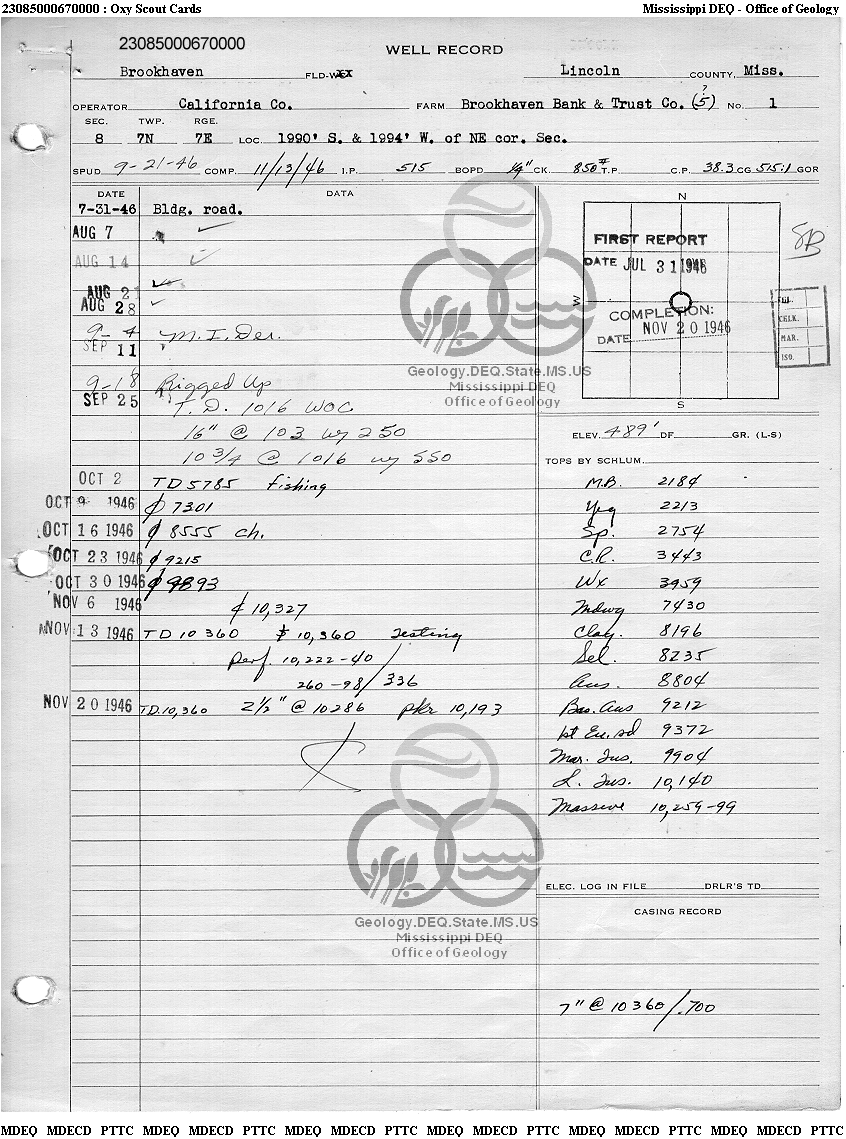 23085000670000 : Oxy Scout Cards Mississippi DEQ - Office of Geology
23085000670000
WELL RECORD
Brookhaven FLD-WCxx Lincoln COUNTY, Miss.
OPERATOR California Co. FARM Brookhaven Bank & Trust Co. (5) ? No. 1
SEC. TWP. RGE.
8 7N 7E LOC. 1990' S. & 1994' W. of NE cor. Sec.
SPUD 9-21-46 COMP. 11/13/46 I.P. 515 BOPD 1/4" CK. 850# T.P. C.P. 38.3 CG 515:1 GOR
DATE DATA
7-31-46 Bldg. road.
AUG 7
AUG 14
AUG 21
AUG 28
9-4 M.I. Der.
SEP 11
9-18 Rigged Up
SEP 25 T.D. 1016 WOC
16" @ 103 w/ 250
10 3/4 @ 1016 w/ 550
OCT 2 TD 5785 fishing
OCT 9 1946 ₵ 7301
OCT 16 1946 ₵ 8555 ch.
OCT 23 1946 ₵ 9215
OCT 30 1946 ₵ 9893
NOV 6 1946 ₵ 10,327
NOV 13 1946 TD 10360 10,360 testing
perf. 10,222-40/
260-98/336
NOV 20 1946 T.D. 10,360 2 1/2" @ 10286 pkr 10,193
N
FIRST REPORT
DATE JUL 31 1946
W
COMPLETION:
DATE NOV 20 1946
S
SB
CELK.
MAR.
ISO.
ELEV. 489' DF. GR. (L-S)
TOPS BY SCHLUM.
M.B. 2184
Yeg 2213
Sp. 2754
C.R. 3443
Wx 3959
Mdwy 7430
Clay. 8196
Sel. 8235
Aus. 8804
Bas. Aus 9212
1st Eu. sd 9372
Mar. Tus. 9904
L. Tus. 10,140
Massive 10,259-99
ELEC. LOG IN FILE DRLR'S TD
CASING RECORD
7" @ 10360/.700
Geology.DEQ.State.MS.US
Mississippi DEQ
Office of Geology
Geology.DEQ.State.MS.US
Mississippi DEQ
Office of Geology
MDEQ MDECD PTTC MDEQ MDECD PTTC MDEQ MDECD PTTC MDEQ MDECD PTTC MDEQ MDECD PTTC MDEQ MDECD PTTC